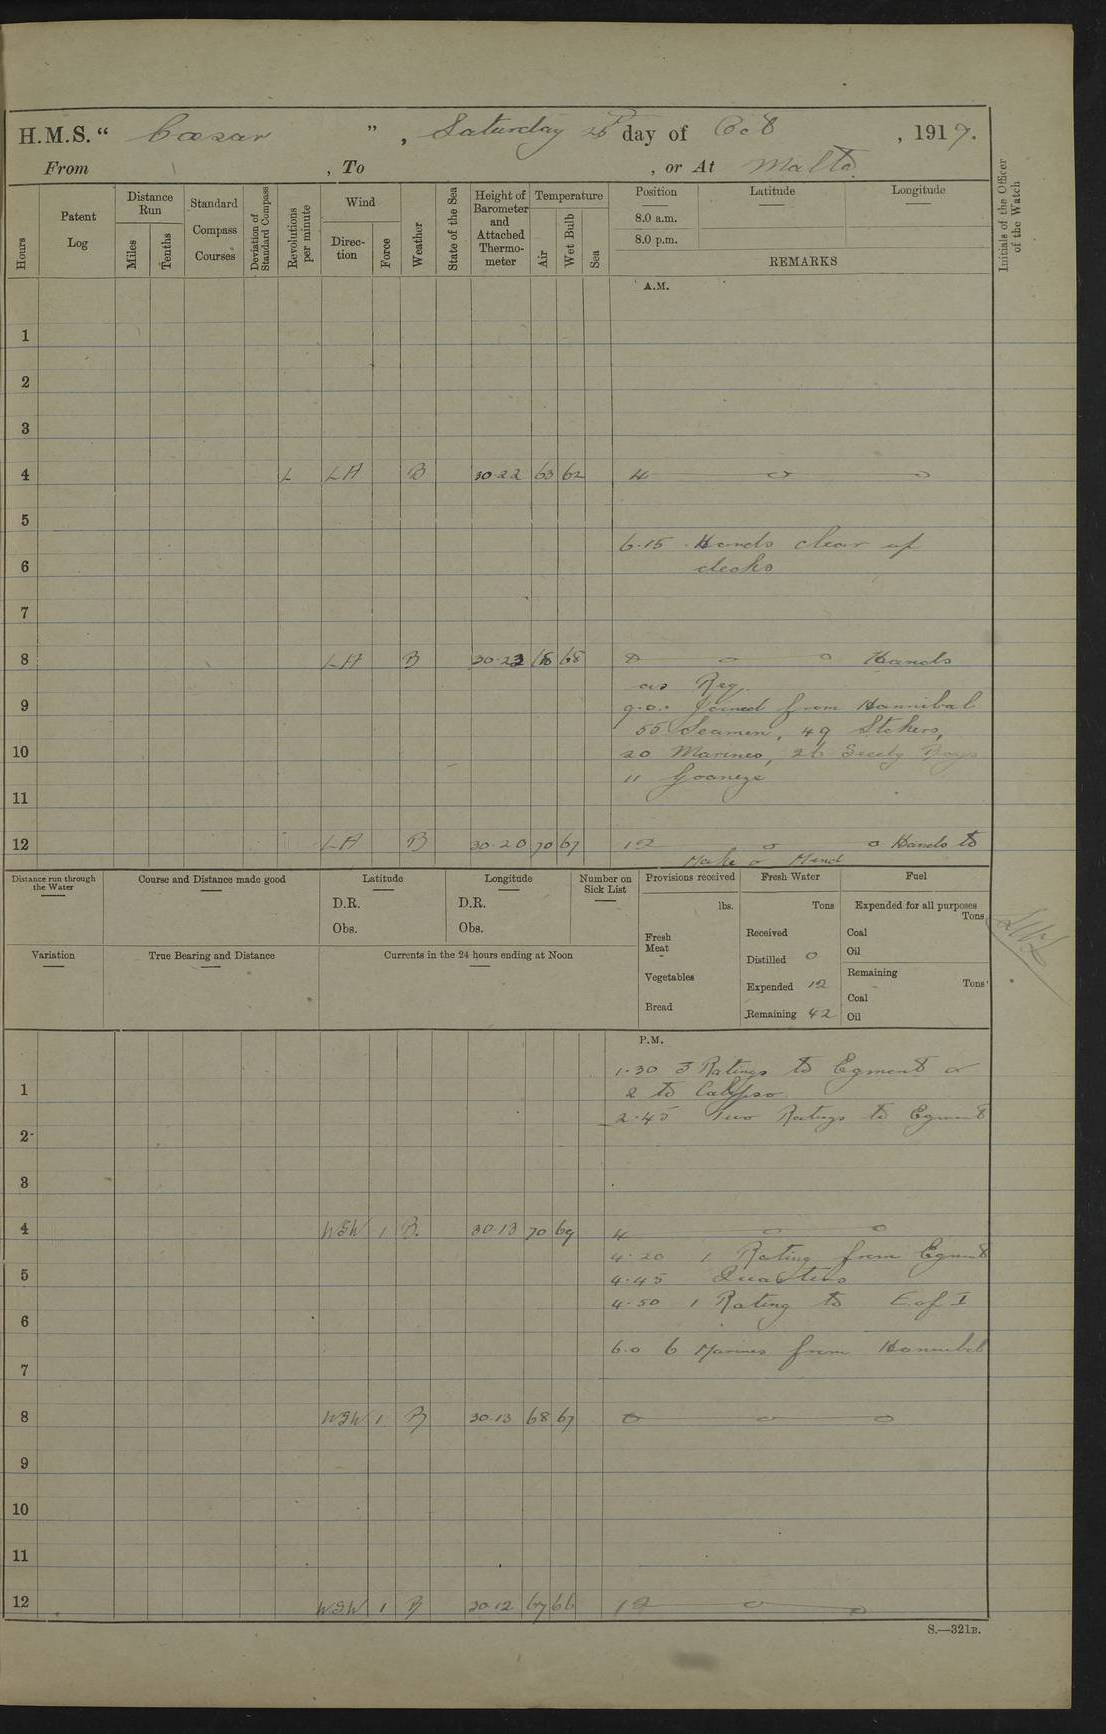 H.M.S. “ Cæsar ” , Saturday day of Oct , 1917.
From , To , or At Malta
Hours
Patent Log
Distance Run
Miles
Tenths
Standard Compass Courses
Deviation of Standard Compass
Revolutions per minute
Wind
Direction
Force
Weather
State of the Sea
Height of Barometer and Attached Thermometer
Temperature
Air
Wet Bulb
Sea
Position
8.0 a.m.
8.0 p.m.
Latitude
Longitude
REMARKS
Initials of the Officer of the Watch
A.M.
1
2
3
4 LA B 30·22 63 62 4 o o
5
6.15 Hands clear up
6 decks
7
8 LA B 30·23 68 8 o o Hands
as Req.
9 9.0. Joined from Hannibal
55 Seamen, 49 Stokers,
10 20 Marines, 26 Seedy Boys
11 Goaneze
11
12 LA B 30·20 70 67 12 o o Hands to
Make & Mend
Distance run through the Water
Course and Distance made good
Latitude
D.R.
Obs.
Longitude
D.R.
Obs.
Number on Sick List
Provisions received
lbs.
Fresh Meat
Vegetables
Bread
Fresh Water
Tons
Received
Distilled 0
Expended 12
Remaining 42
Fuel
Expended for all purposes
Tons
Coal
Oil
Remaining
Tons
Coal
Oil
Variation
True Bearing and Distance
Currents in the 24 hours ending at Noon
P.M.
1·30 3 Ratings to Egmont &
1 2 to Calypso
2·45 Two Ratings to Egmont
2
3
4 WSW 1 B. 30·13 70 69 4 o o
4·20 1 Rating from Egmont
5 4·45 Quarters
4·50 1 Rating to E of I
6
6.0 6 Marines from Hannibal
7
8 WSW 1 B 30·13 68 67 8 o o
9
10
11
12 WSW 1 B 30·12 67 66 12 o o
S.—321B.